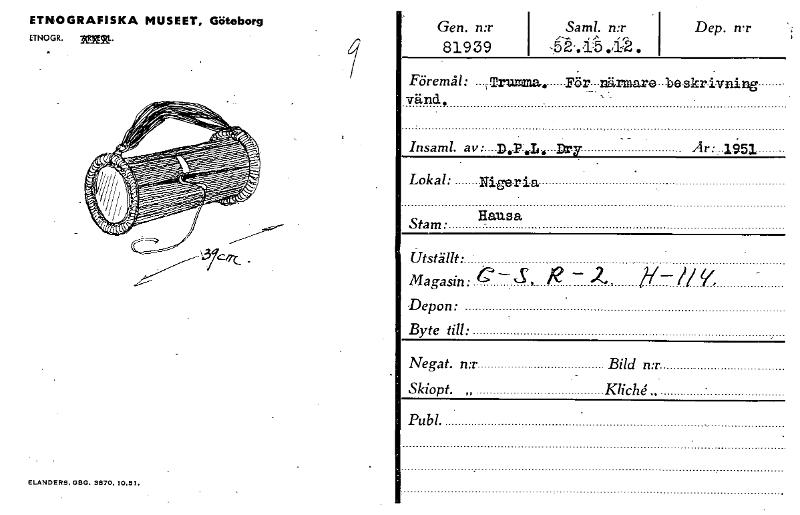 ETNOGRAFISKA MUSEET, Göteborg
ETNOGR.
9
39cm.
ELANDERS, GBG. 3870, 10.51.
Gen. n:r Saml. n:r Dep. n:r
81939 52.15.12.
Föremål: Trumma. För närmare beskrivning
vänd.
Insaml. av: D.P.L. Dry År: 1951
Lokal: Nigeria
Stam: Hausa
Utställt:
Magasin: G-S. R-2. H-114.
Depon:
Byte till:
Negat. n:r Bild n:r
Skiopt. „ Kliché „
Publ.